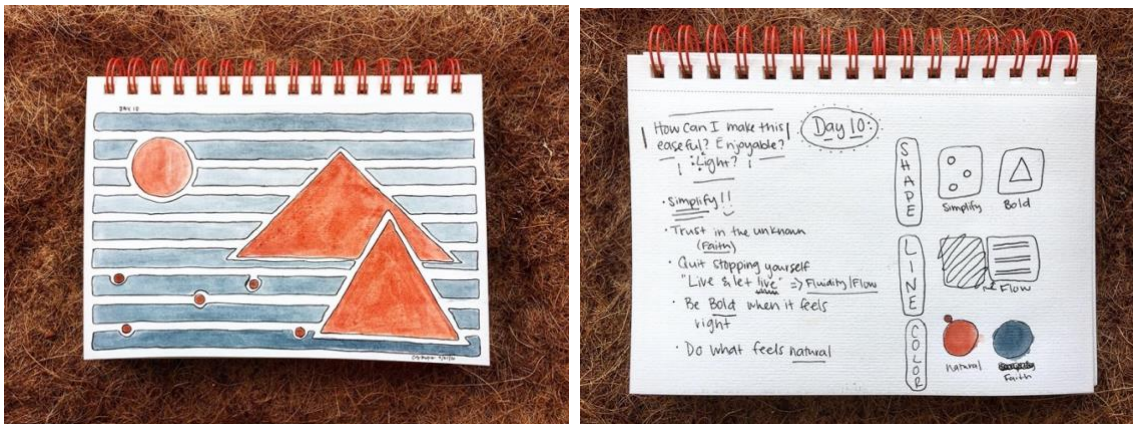 DAY 10
How Can I make this
easeful? Enjoyable?
Light?
Day 10:
• Simplify!!
• Trust in the unknown
(Faith)
• Quit stopping yourself
"Live & let live" => Fluidity/Flow
• Be Bold when it feels
right
• Do what feels natural
SHAPE
Simplify
Bold
LINE
Flow
COLOR
natural
Faith